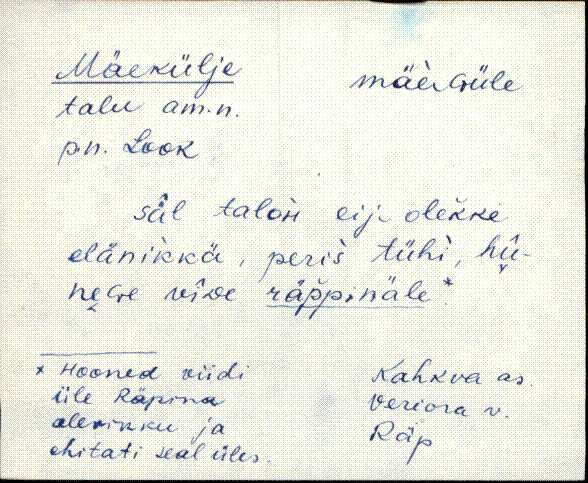 Mäekülje
talu am.n.
p.n. Look
mäeküle
sä̂l talon eij olekke
elänikkä, periś tühi,
nege vîve räppinäle*
* Hooned viidi
üle Räpina
alevikku ja
ehitati seal üles.
Kahkva as.
Veriora v.
Räp